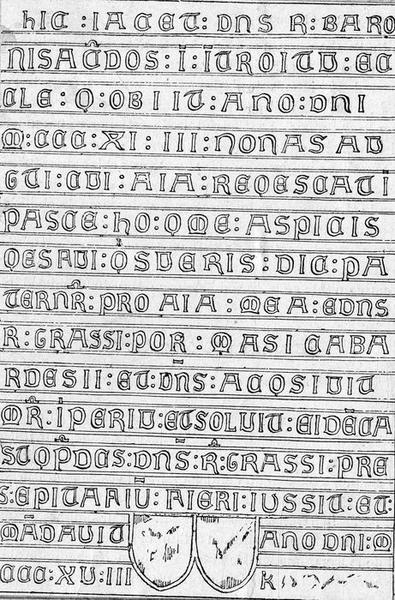 hIC : IACET : DNS R : BARO
NISACDOS : I : ITROITU : EC
CLE : Q : OBIIT : ANO : DNI
M : CCC : XI : III : NONAS AU
GTI : CUI : AIA : REQESCATI
PASCE : hO : QME : ASPICIS
QESAUI : QSUERIS : DIC : PA
TERNR : PRO AIA : MEA : EDNS
R : GRASSI : POR : MASICABA
RDESII : ET : DNS : ACQSIUIT
MR : IPERIU : ETSOLUIT : EIDECA
STQPDCS : DNS : R : GRASSI : PRE
S : EPITAAIU : FIERI : IUSSIT : ET :
MADAUIT ANO DNI : M
CCC : XU : IIII K